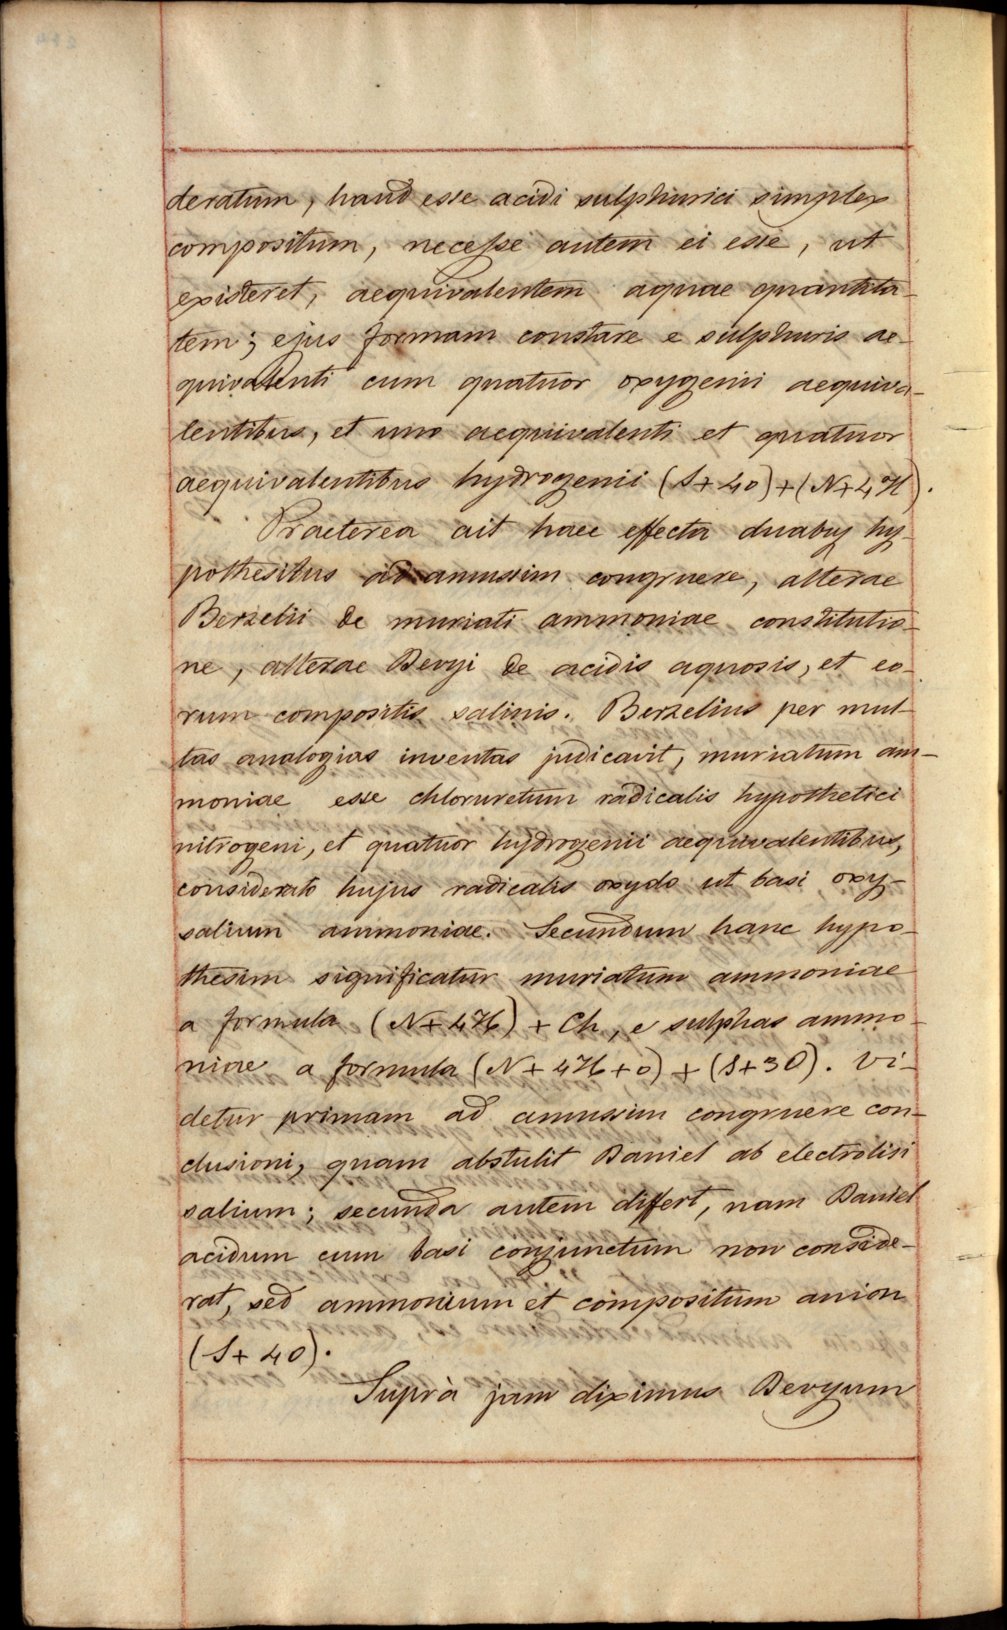 deratum, haud esse acidi sulphurici simplex
compositum, necesse autem ei esse, ut
existeret, aequivalentem aquae quantita-
tem; ejus formam constare e sulphuris ae-
quivalenti cum quatuor oxygenii aequiva-
lentibus, et uno aequivalenti et quatuor
aequivalentibus hydrogenii (S+4O)+(N+4H).
Praeterea ait haec effecta duabus hy-
pothesibus ad amussim congruere, alterae
Berzelii de muriati ammoniae constitutio-
ne, alterae Devyi de acidis aquosis, et eo-
rum compositis salinis. Berzelius per mul-
tas analogias inventas judicavit, muriatum am-
moniae esse chloruretum radicalis hypothetici
nitrogeni, et quatuor hydrogenii aequivalentibus,
considerato hujus radicalis oxydo ut basi oxy-
salium ammoniae. Secundum hanc hypo-
thesim significatur muriatum ammoniae
a formula (N+4H) + Ch, e sulphas ammo-
niae a formula (N+4H+O) + (S+3O). Vi-
detur primam ad amussim congruere con-
clusioni, quam abstulit Daniel ab electrolisi
salium; secunda autem differt, nam Daniel
acidum cum basi conjunctum non conside-
rat, sed ammonium et compositum anion
(S+4O).
Suprà jam diximus Devyum